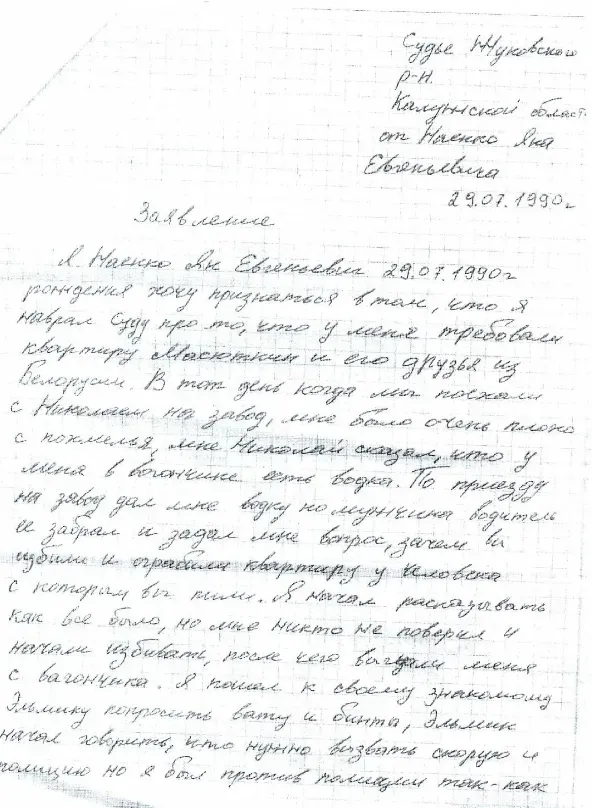 Судье Жуковского
р-н.
Калужской област
от Наенко Яна
Евгеньевича
29.07.1990г
Заявление
Я Наенко Ян Евгеньевич 29.07.1990г
рождения хочу признаться в том, что я
наврал суду про то, что у меня требовали
квартиру Масюткин и его друзья из
Белорусии. В тот день когда мы поехали
с Николаем на завод, мне было очень плохо
с похмелья, мне Николай сказал, что у
меня в вагончике есть водка. По приезду
на завод дал мне водку но мужчина водитель
ее забрал и задал мне вопрос, зачем вы
избили и ограбили квартиру у человека
с которым вы пили. Я начал расказывать
как все было, но мне никто не поверил и
начали избивать, после чего выгнали меня
с вагончика. Я пошел к своему знакомому
Эльмику попросить вату и бинты, Эльмик
начал говорить, что нужно вызвать скорую и
полицию но я был против полиции так-как